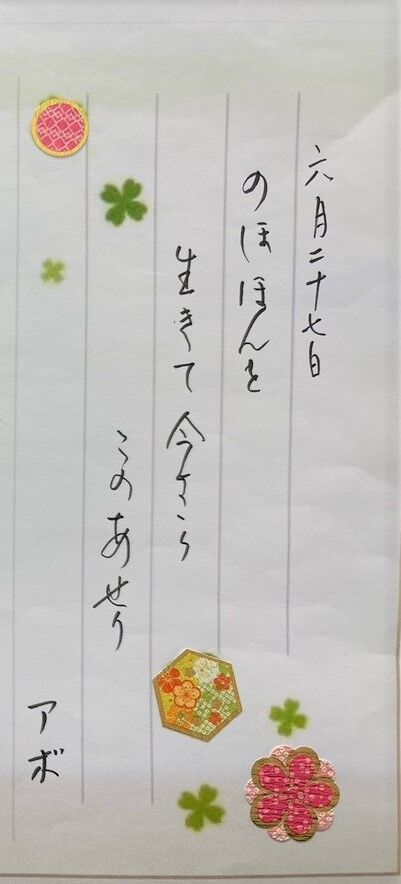 六月二十七日
のほほんと
生きて今さら
このあせり
アボ